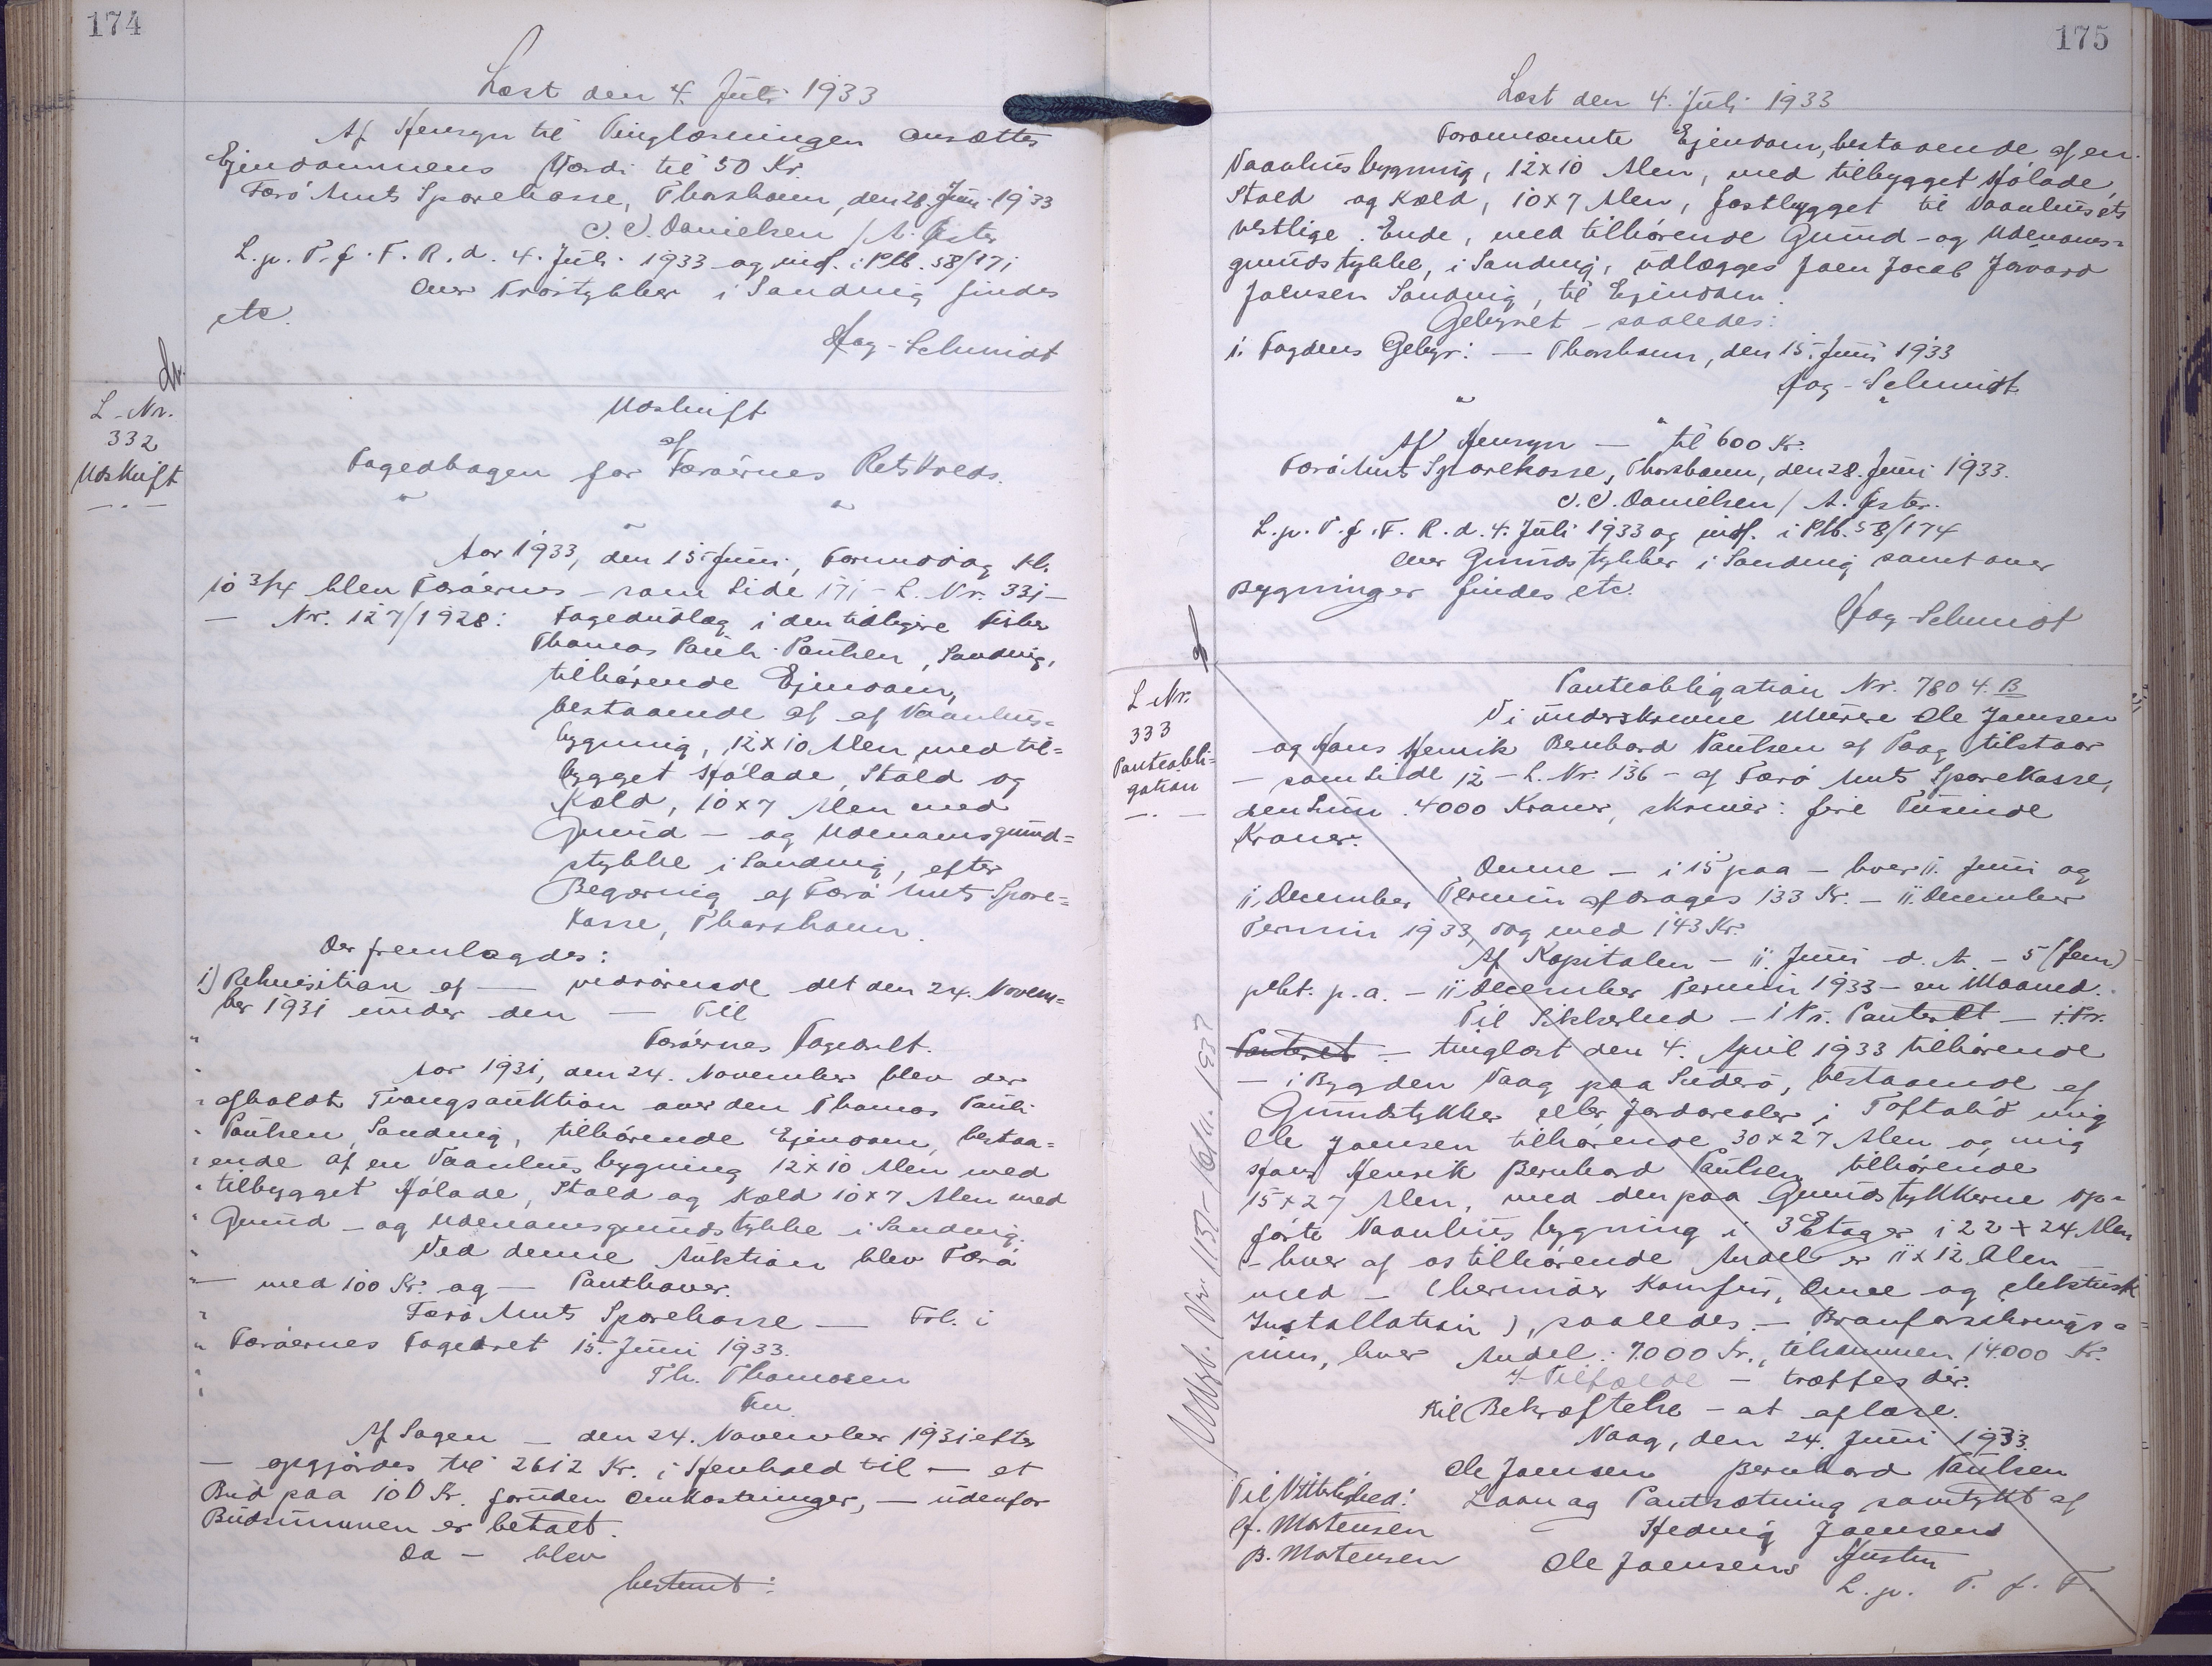 174
Læst den 4. Juli 1933
Af Hensyn til Tinglæsningen ansættes
Ejendommens Værdi til 50 Kr.
Færø Amts Sparekasse, Thorshavn, den 28. Juni 1933
J. J. Danielsen / A. Øster
L. p. T. f. F. R. d. 4. Juli 1933 og indf. i Ptb. 58/171
Over Trøstykker i Sandvig findes
etc.
Høg-Schmidt
L-Nr.
332
Udskrift
Udskrift
af
Fogedbogen for Færøernes Retskreds.
Aar 1933, den 15. Juni, Formiddag Kl.
10 3/4 blev Færøernes - som Side 171 - L. Nr. 331 -
- Nr. 127/1928: Fogedudlæg i den tidligere Fisker
Thomas Pauli Paulsen, Sandvig,
tilhørende Ejendom,
bestaaende af af Vaanhus=
bygning, 12x10 Alen, med til=
bygget Hjólade, Stald og
Kæld, 10x7 Alen med
Grund - og Udenomsgrund=
stykke i Sandvig, efter
Begæring af Færø Amts Spare=
kasse, Thorshavn.
Der fremlagdes:
1) Rekvisition af — vedrørende det den 24. Novem=
ber 1931 under den — Til
" Færøernes Fogedret.
" Aar 1931, den 24. November blev der
" afholdt Tvangsauktion over den Thomas Pauli
" Paulsen, Sandvig, tilhørende Ejendom, bestaa=
" ende af en Vaanhusbygning 12x10 Alen med
" tilbygget Hjólade, Stald og Kæld 10x7 Alen med
" Grund - og Udenomsgrundstykke i Sandvig.
" Ved denne Auktion blev Færø
" — med 100 Kr. og — Panthaver.
" Færø Amts Sparekasse — Frl. i
" Færøernes Fogedret 15. Juni 1933.
" Th. Thomasen
" Fm.
Af Sagen — den 24. November 1931 efter
— opgjordes til 2612 Kr. i Henhold til — et
Bud paa 100 Kr. foruden Omkostninger, — udenfor
Budsummen er betalt.
Da — blev
bestemt:
175
Læst den 4. Juli 1933
Forannævnte Ejendom, bestaaende af en
Vaanhusbygning, 12x10 Alen, med tilbygget Hjólade,
Stald og Kæld, 10x7 Alen, fastbygget til Vaanhusets
vestlige Ende, med tilhørende Grund - og Udenoms=
grundstykke, i Sandvig, udlægges Joen Jacob
Joensen Sandvig, til Ejendom.
Gebyret - saaledes:
1. Fogdens Gebyr: — Thorshavn, den 15. Juni 1933
Høg-Schmidt
Af Hensyn — til 600 Kr.
Færø Amts Sparekasse, Thorshavn, den 28. Juni 1933.
J. J. Danielsen / A. Øster.
L. p. T. f. F. R. d. 4. Juli 1933 og indf. i Ptb. 58/174
Over Grundstykker i Sandvig samt over
Bygninger findes etc.
Høg-Schmidt
L Nr.
333
Panteobli=
gation
Panteobligation Nr. 7804. B
Vi underskrevne Murere Ole Joensen
og Hans Henrik Bernhard Paulsen af Vaag tilstaar
- som Side 12 - L. Nr. 136 - af Færø Amts Sparekasse,
den Sum 4000 Kroner, skriver: fire Tusinde
Kroner.
Denne — i 15 paa — hver 11. Juni og
11. December Termin afdrages 133 Kr. — 11. December
Termin 1933, dog med 143 Kr.
Af Kapitalen — 11. Juni d. A. — 5 (fem)
pCt. p. a. — 11 December Termin 1933 — en Maaned.
Til Sikkerhed — 1 Pr. Panteret — 1. Pr.
Panteret — tinglæst den 4. April 1933 tilhørende
— i Bygden Vaag paa Suderø, bestaaende af
Grundstykker eller Jordarealer i Toftalid mig
Ole Joensen tilhørende 30x27 Alen og mig
Hans Henrik Bernhard Paulsen tilhørende
15x27 Alen, med den paa Grundstykkerne op=
førte Vaanhusbygning i 3 Etager i 22 x 24 Alen
- hver af os tilhørende Andel er 11x12 Alen —
med — (herunder Komfur, Ovne og elektrisk
Installation), saaledes. — Branforsikrings=
sum, hver Andel: 7000 Kr., tilsammen 14.000 Kr.
I Tilfælde — træffes der.
Til Bekræftelse — at aflæse.
Vaag, den 24. Juni 1933.
Ole Joensen Bernhard Paulsen
Til Vitterlighed: Laan og Pantsætning samtykt af
J. Mortensen Hedvig Joensen
B. Mortensen Ole Joensens Hustru
L. p. T. f. F.
Nr. 1137 - 16/11. 1937